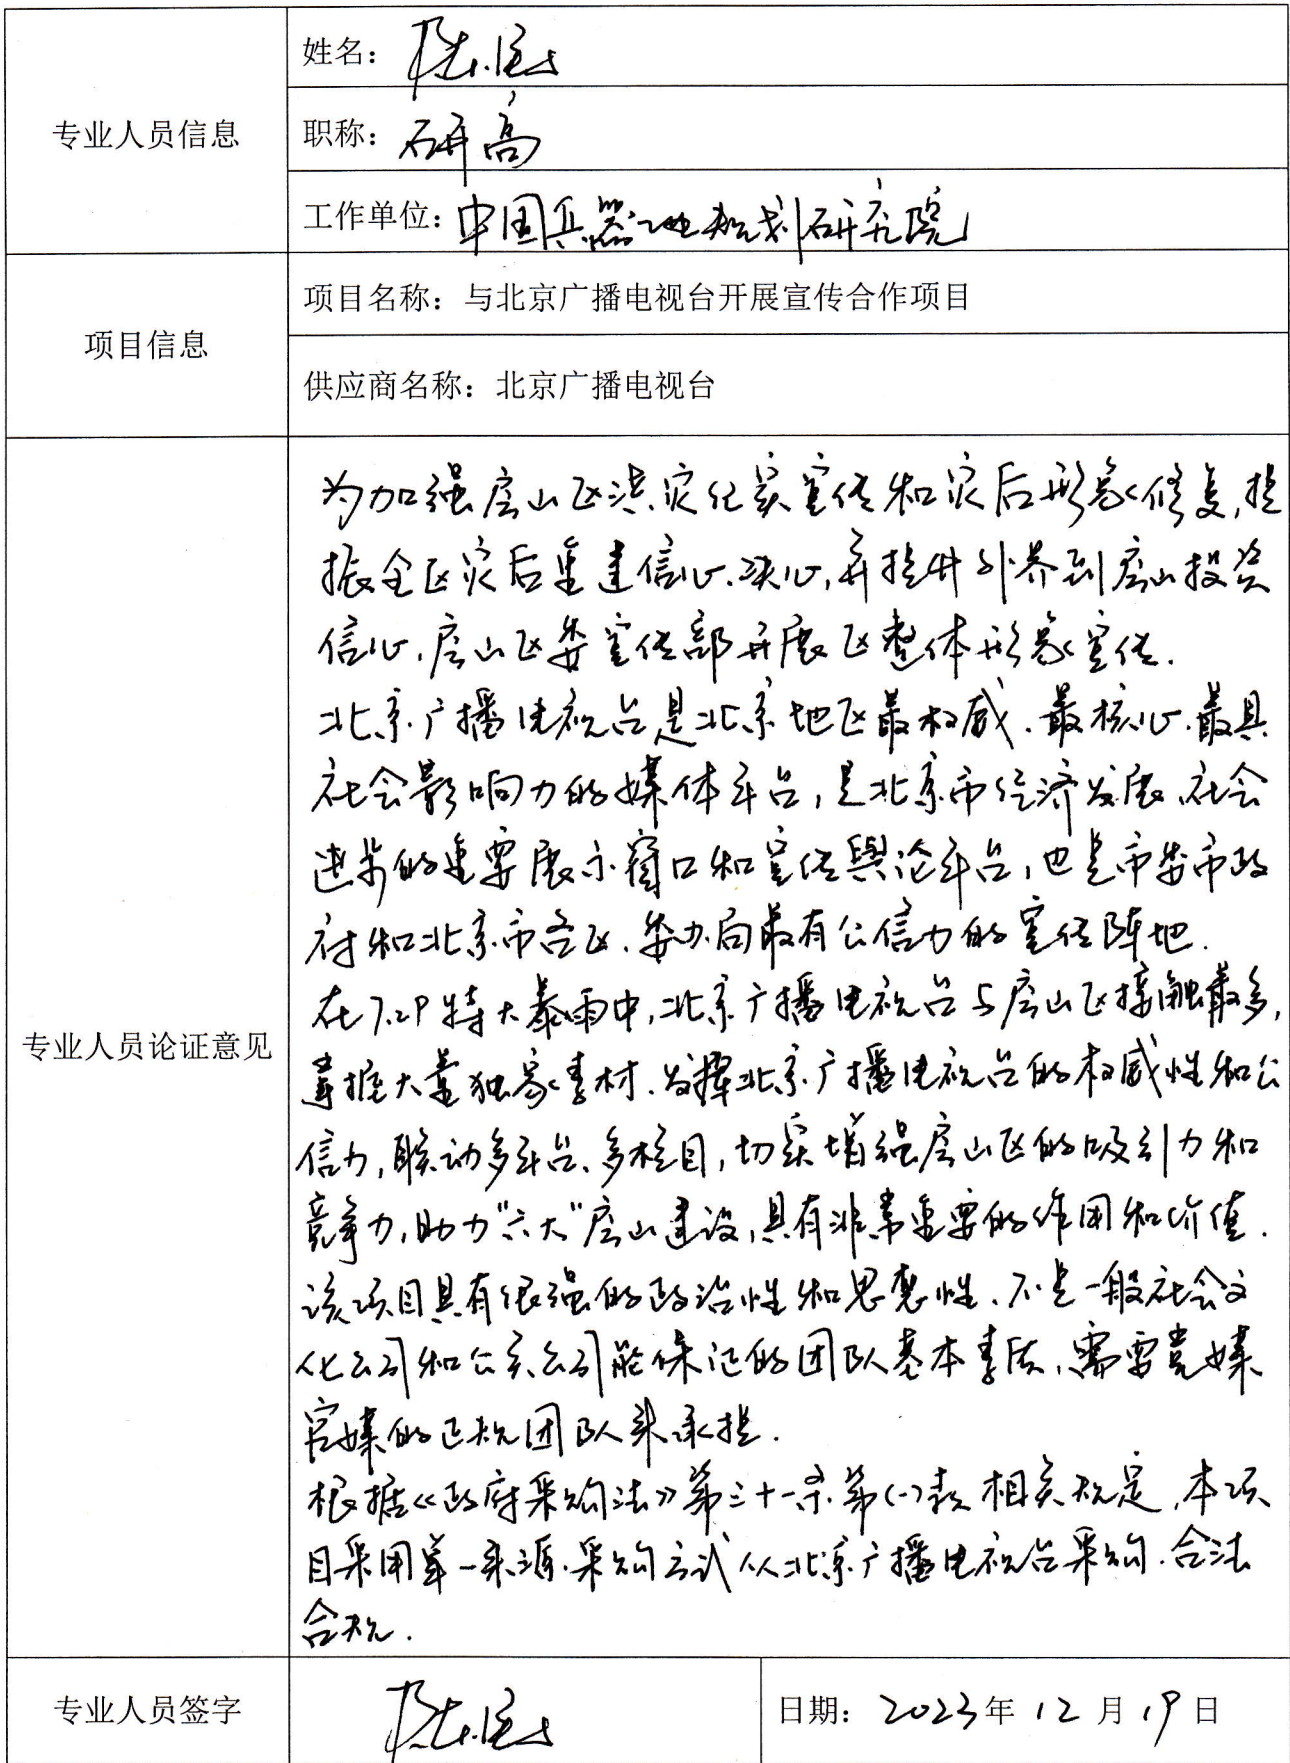 专业人员信息
姓名：
职称：研高
工作单位：中国兵器工业规划研究院
项目信息
项目名称：与北京广播电视台开展宣传合作项目
供应商名称：北京广播电视台
专业人员论证意见
为加强房山区洪灾纪实宣传和灾后形象修复，提
振全区灾后重建信心、决心，并提升外界到房山投资
信心，房山区委宣传部开展区整体形象宣传．
北京广播电视台是北京地区最权威、最核心、最具
社会影响力的媒体平台，是北京市经济发展、社会
进步的重要展示窗口和宣传舆论平台，也是市委市政
府和北京市各区、委办局最有公信力的宣传阵地．
在7.29特大暴雨中，北京广播电视台与房山区接触最多，
掌握大量独家素材．发挥北京广播电视台的权威性和公
信力，联动多平台、多栏目，切实增强房山区的吸引力和
竞争力，助力"六大"房山建设，具有非常重要的作用和价值．
该项目具有很强的政治性和思想性、不是一般社会文
化公司和公关公司能保证的团队基本素质，需要党媒
官媒的正规团队来承担．
根据《政府采购法》第三十一条第(一)款相关规定，本项
目采用单一来源采购方式从北京广播电视台采购．合法
合规．
专业人员签字
日期：2023年12月19日